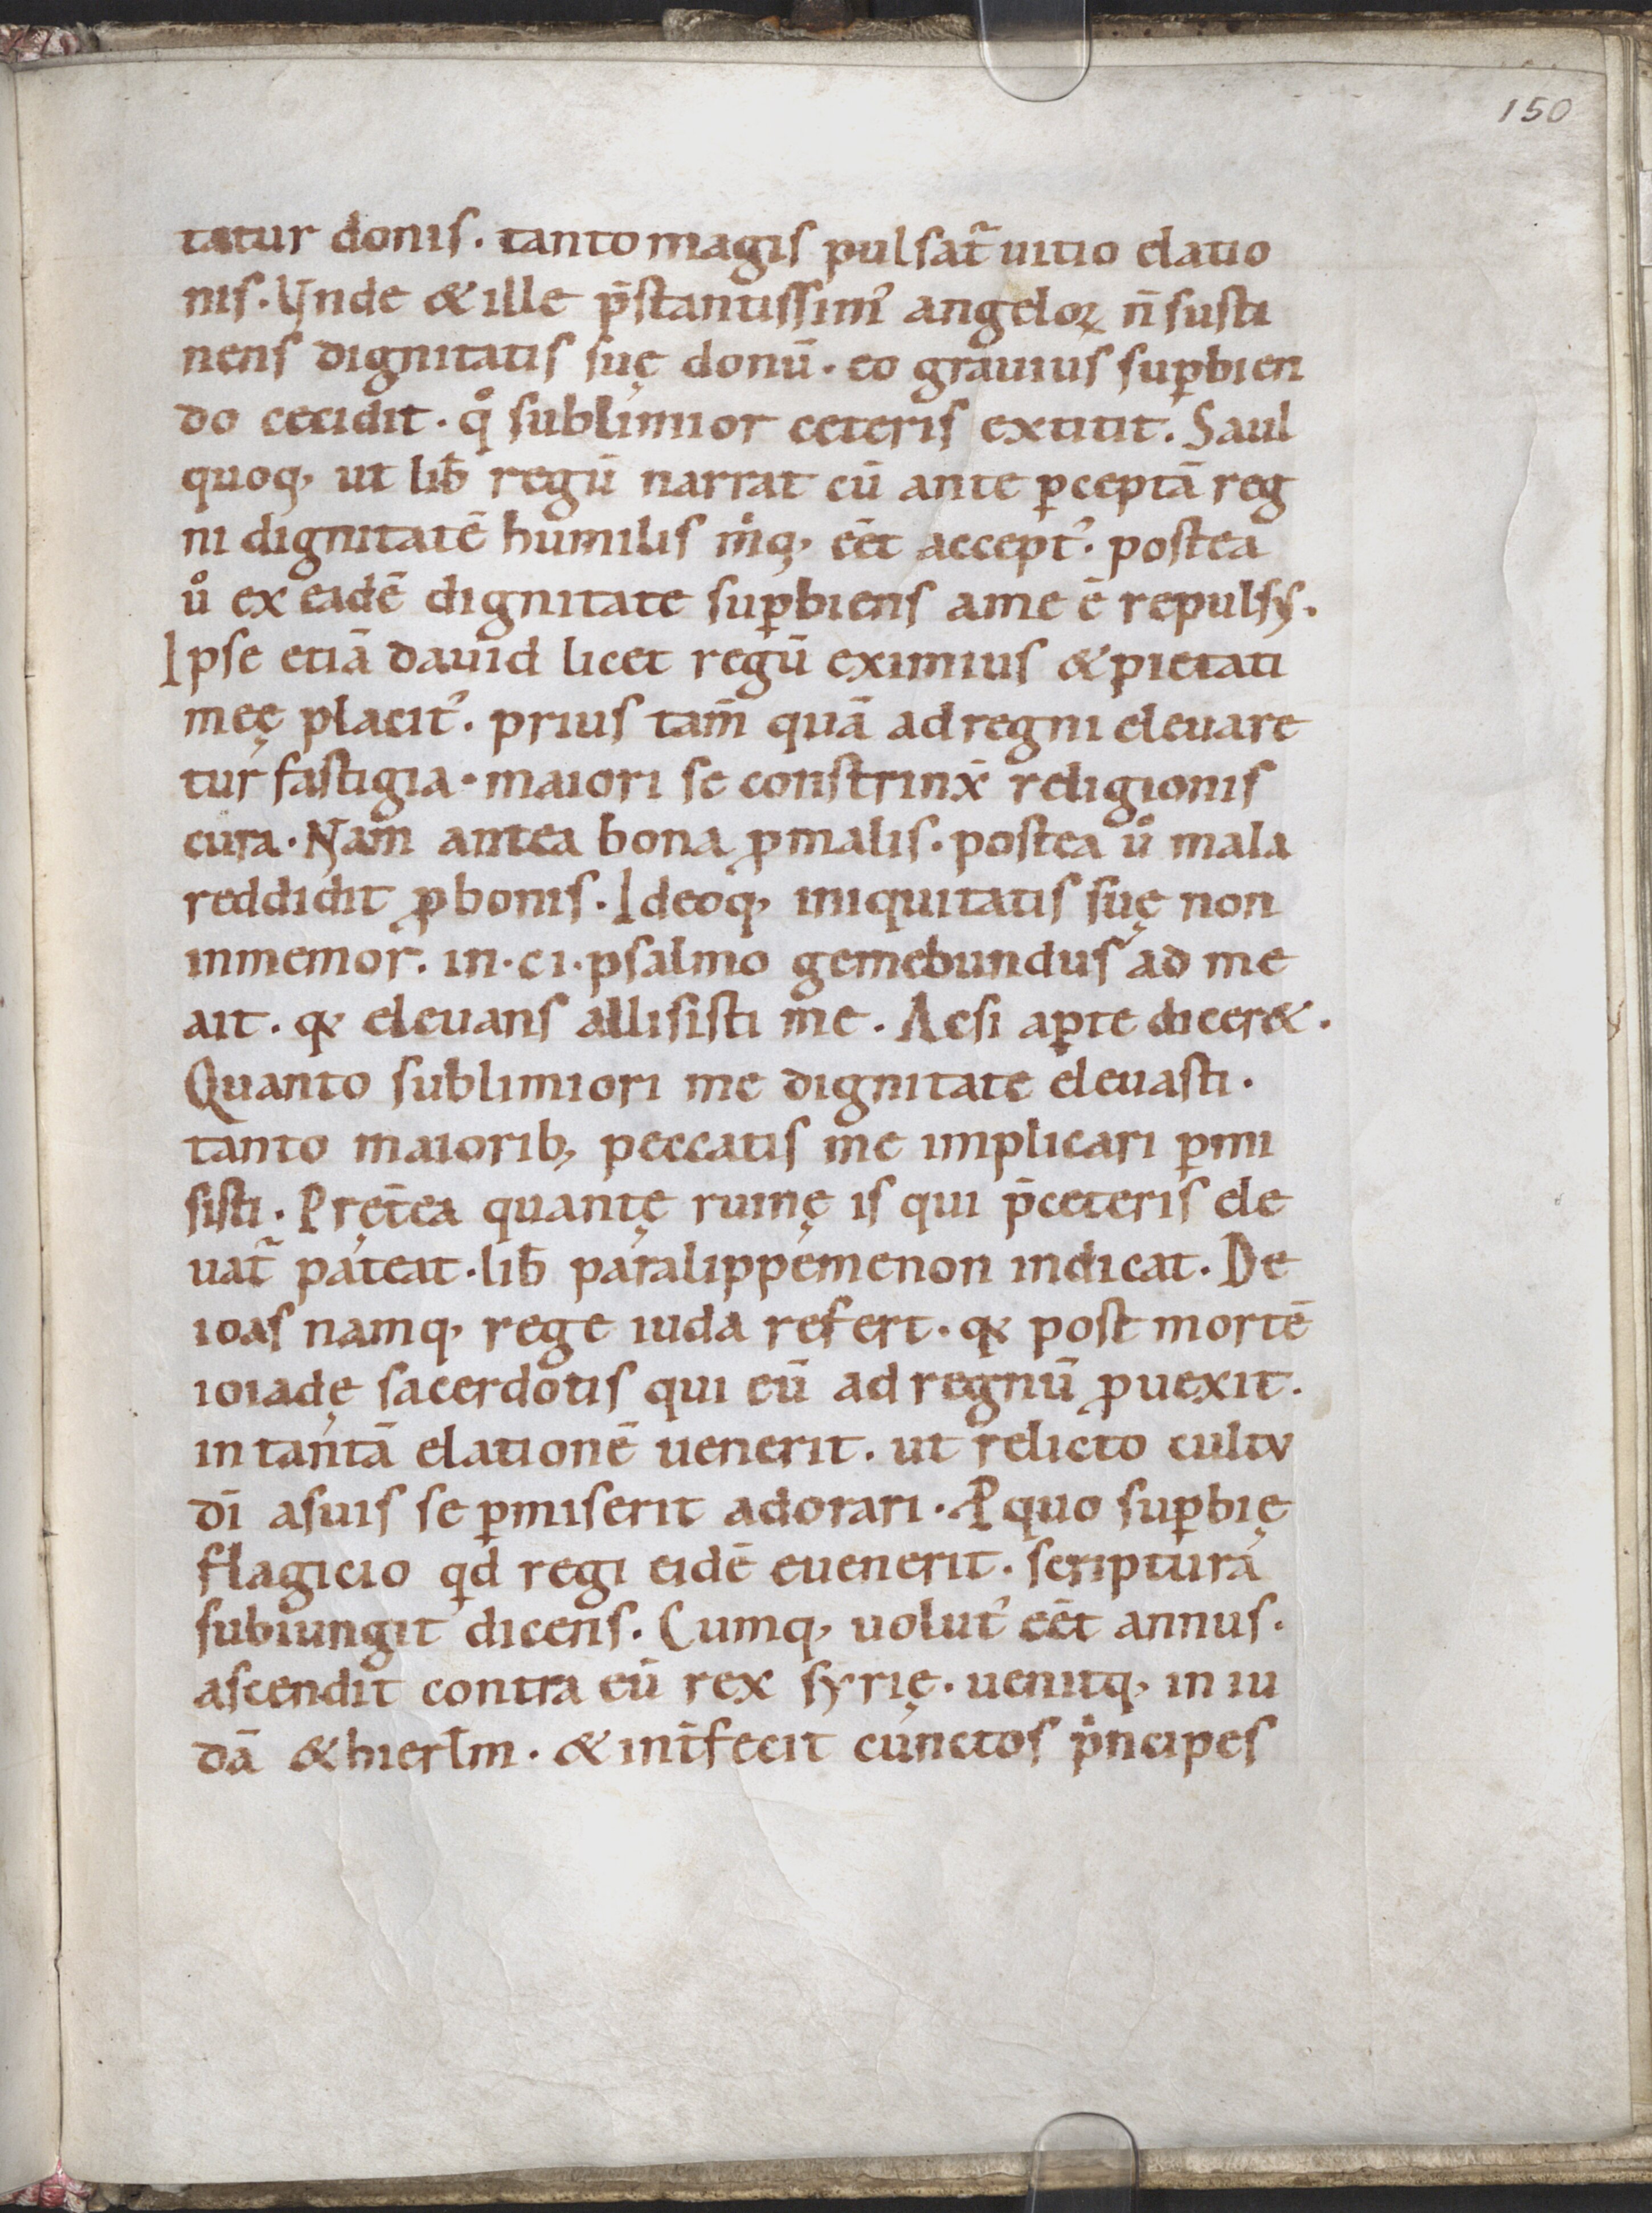 150
tatur donis. tanto magis pulsat᷑ uitio elatio
nis. Vnde & ille p̄stantissim᾽ angeloꝝ n̄ susti
nens dignitatis suę donū. eo grauius suꝑbien
do cecidit. qͦ sublimior ceteris extitit. Saul
quoq; ut lib̄ regū narrat cū ante ꝑceptā reg
ni dignitatē humilis mͥq; eēt accept᾽. postea
uͦ ex eadē dignitate suꝑbiens a me ē repulsus.
Ipse etiā dauid licet regū eximius & pietati
meę placit᾽. prius tam̄ quā ad regni eleuare
tur fastigia. maiori se constrinx̄ religionis
cura. Nam antea bona ꝓ malis. postea uͦ mala
reddidit ꝓ bonis. Ideoq; iniquitatis suę non
inmemor. in .ci. psalmo gemebundus ad me
ait. qꝫ eleuans allisisti me. Acsi aꝑte dicer&.
Quanto sublimiori me dignitate eleuasti.
tanto maiorib; peccatis me implicari ꝑmi
sisti. Pręt̄ea quantę ruinę is qui p̄ ceteris ele
uat᷑ pateat. lib̄ paralippemenon indicat. De
ioas namq; rege iuda refert. qꝫ post mortē
ioiadę sacerdotis qui eū ad regnū ꝓuexit.
in tantā elationē uenerit. ut relicto cultu
dī a suis se ꝑmiserit adorari. Ꝓ quo suꝑbię
flagicio qd̄ regi eidē euenerit. scriptura
subiungit dicens. Cumq; uolut᾽ eēt annus.
ascendit contra eū rex syrię. uenitq; in iu
dā & hierl̄m. & int̄fecit cunctos pͥncipes